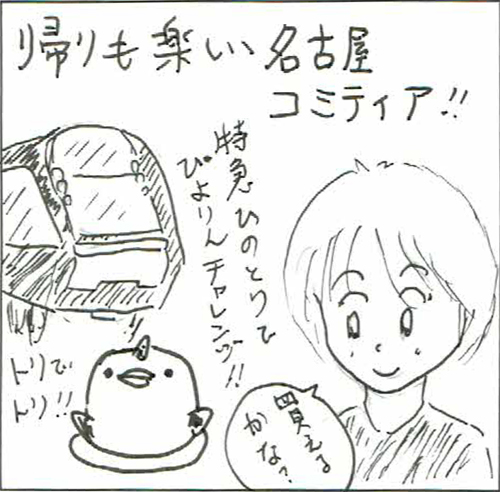 帰りも楽しい名古屋
コミティア!!
特急ひのとりで
ぴよりんチャレンジ!!
トリで
トリ!!
買える
かな?